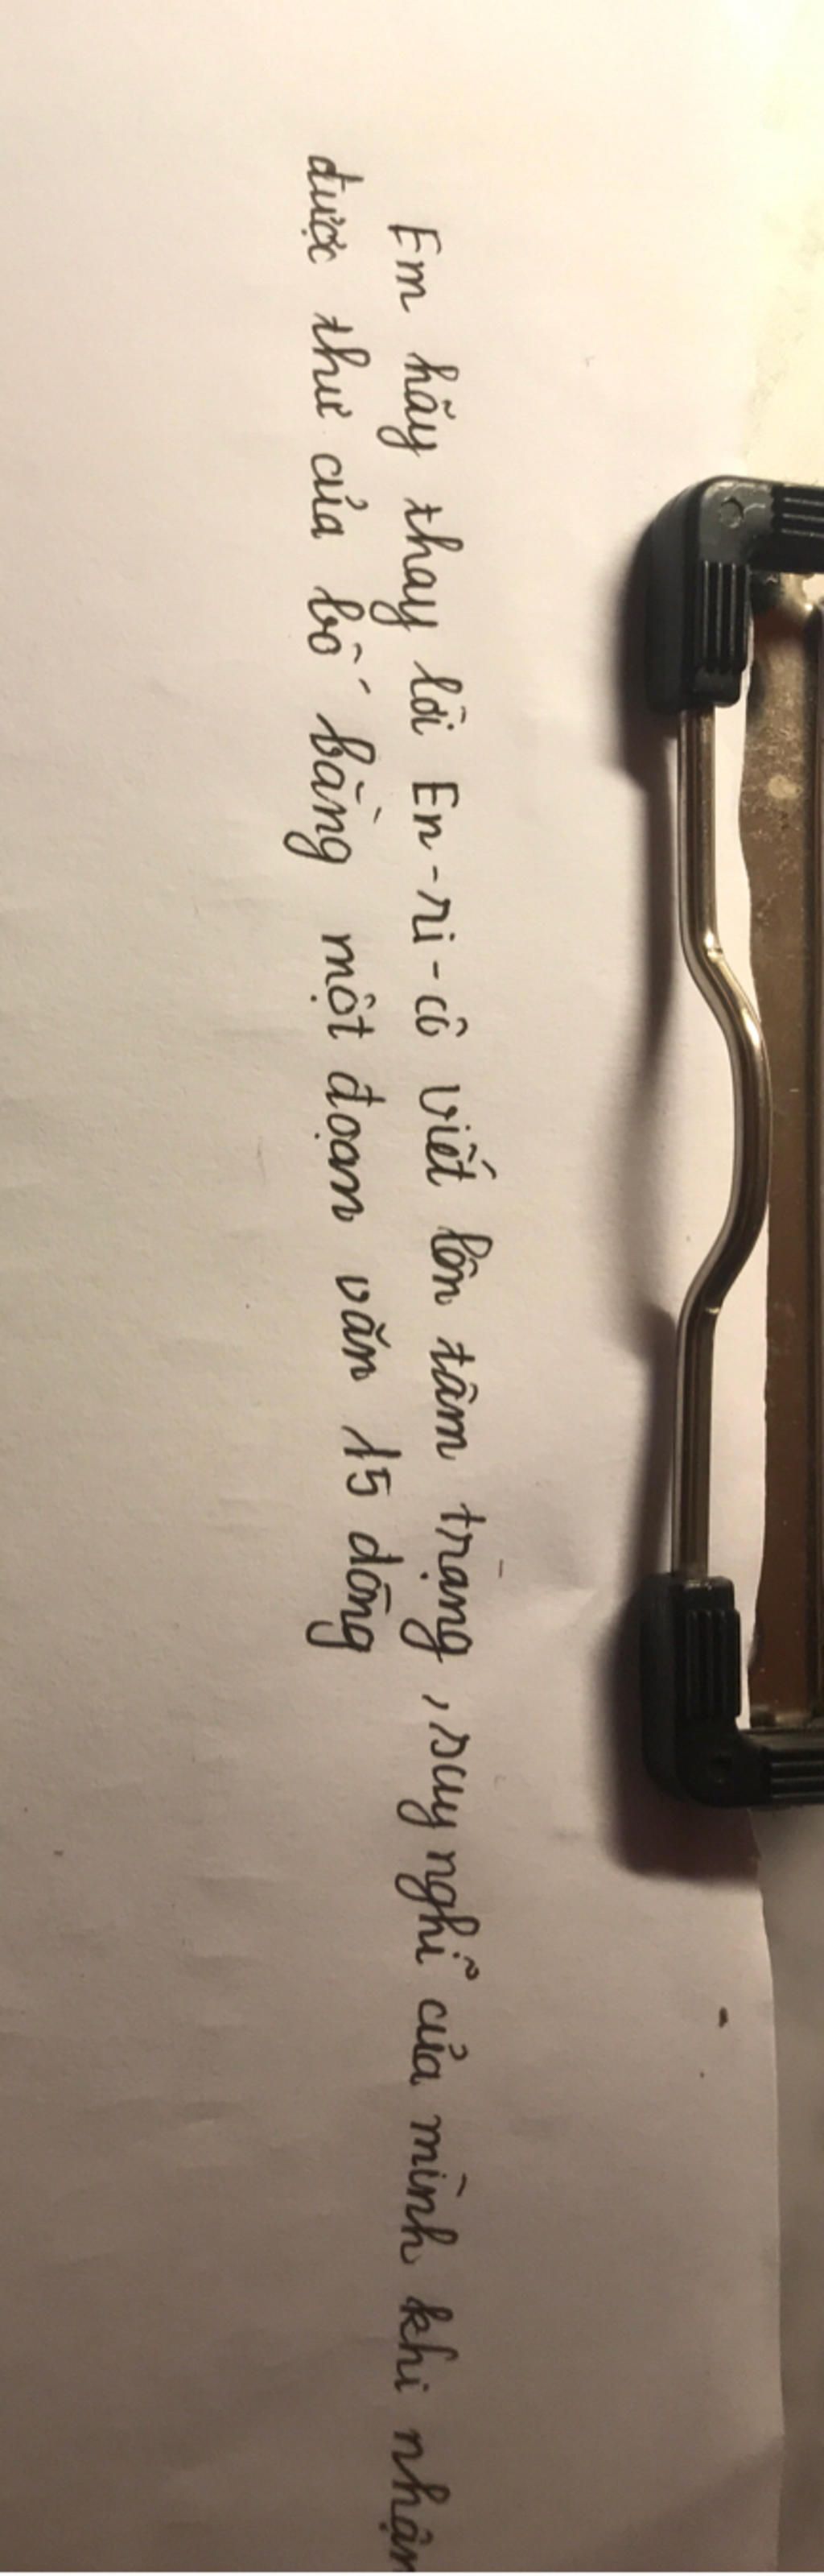 Em hãy thay lời En-ri-cô viết lên tâm trạng, suy nghĩ của mình khi nhận
được thư của bố bằng một đoạn văn 15 dòng